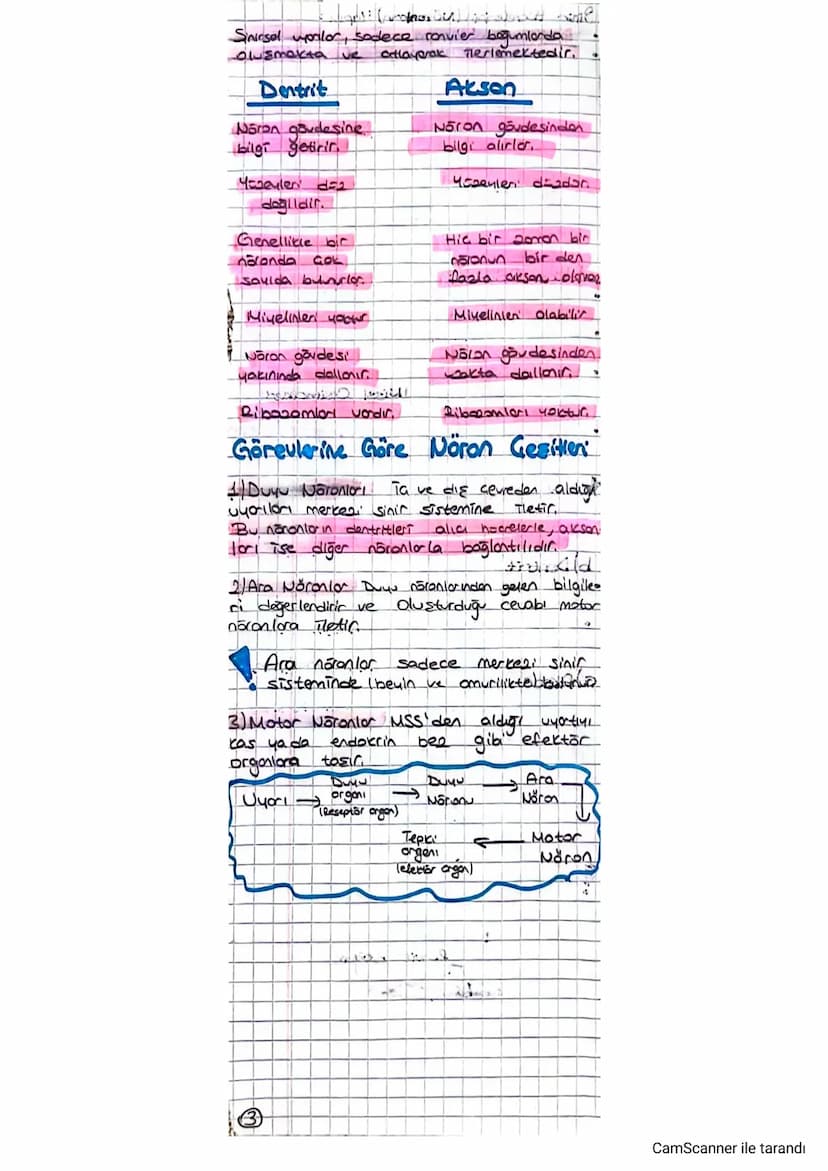 Sinirsel uyarılar, sadece ranvier boğumlarda
oluşmakta ve atlayarak ilerlemektedir.
Dentrit
Akson
Nöron gövdesine
bilgi getirir.
Nöron gövdesinden
bilgi alırlar.
Yüzeyleri düz
değildir.
Yüzeyleri düzdür.
Genellikle bir
nöronda çok
sayıda bulunurlar.
Hiç bir zaman bir
nöronun bir den
fazla aksonu olmaz
Miyelinleri yoktur
Miyelinleri olabilir
Nöron gövdesi
yakınında dallanır.
Nöron gövdesinden
uzakta dallanır.
Ribozomları vardır.
Ribozomları yoktur.
Görevlerine Göre Nöron Çeşitleri
1) Duyu Nöronları İç ve dış çevreden aldığı
uyarıları merkezi sinir sistemine iletir.
Bu nöronların dentritleri alıcı hücrelerle, akson
ları ise diğer nöronlarla bağlantılıdır.
2) Ara Nöronlar Duyu nöronlarından gelen bilgile
ri değerlendirir ve oluşturduğu cevabı motor
nöronlara iletir.
! Ara nöronlar sadece merkezi sinir
sisteminde (beyin ve omurilikte) bulunur
3) Motor Nöronlar MSS'den aldığı uyartıyı
kas yada endokrin bez gibi efektör
organlara taşır.
Uyarı → Duyu organı (Reseptör organ) → Duyu Nöronu → Ara Nöron
Motor Nöron
Tepki organı (efektör organ)
3
CamScanner ile tarandı